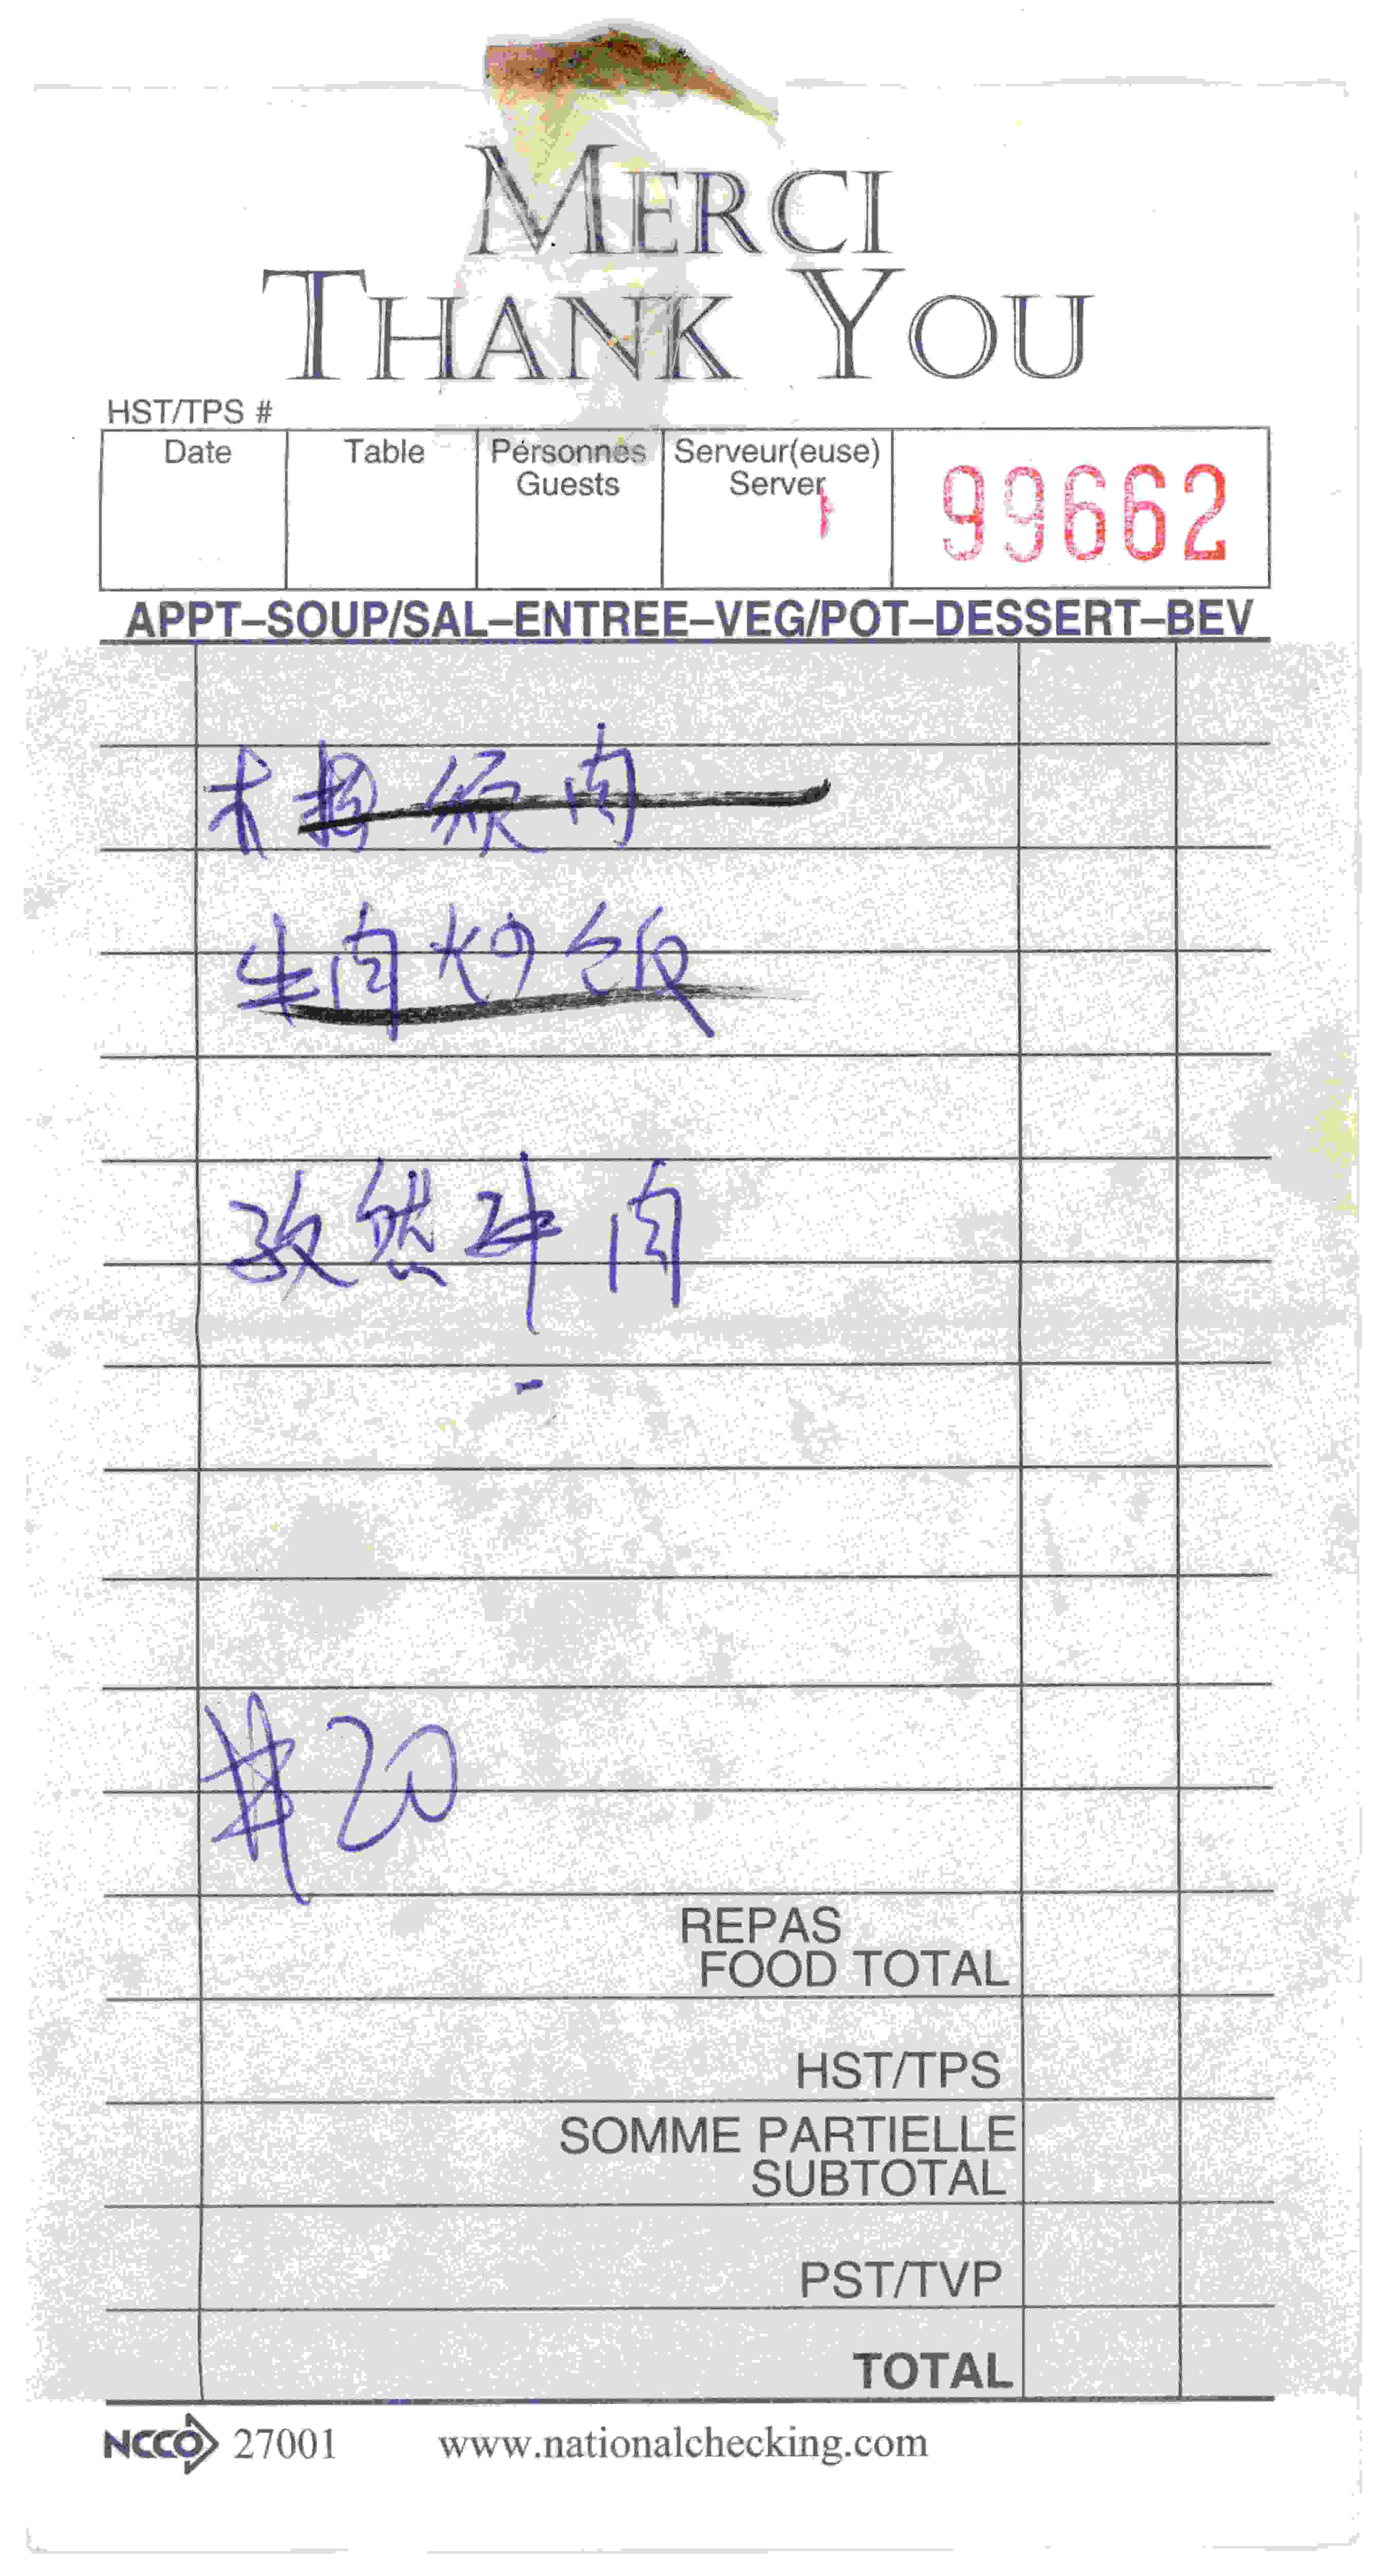 MERCI
THANK YOU
HST/TPS #
Date Table Personnes Serveur(euse) 99662
Guests Server
APPT–SOUP/SAL–ENTREE–VEG/POT–DESSERT–BEV
木 肉
牛肉炒饭
孜然牛肉
#20
REPAS
FOOD TOTAL
HST/TPS
SOMME PARTIELLE
SUBTOTAL
PST/TVP
TOTAL
NCCO 27001 www.nationalchecking.com